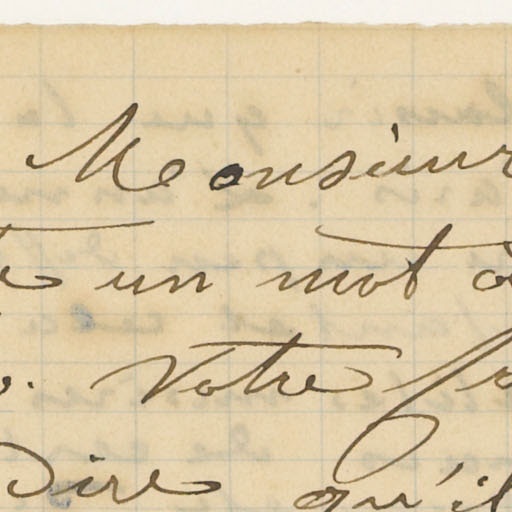 Monsieur
un mot à
. Votre
Dire qu'il